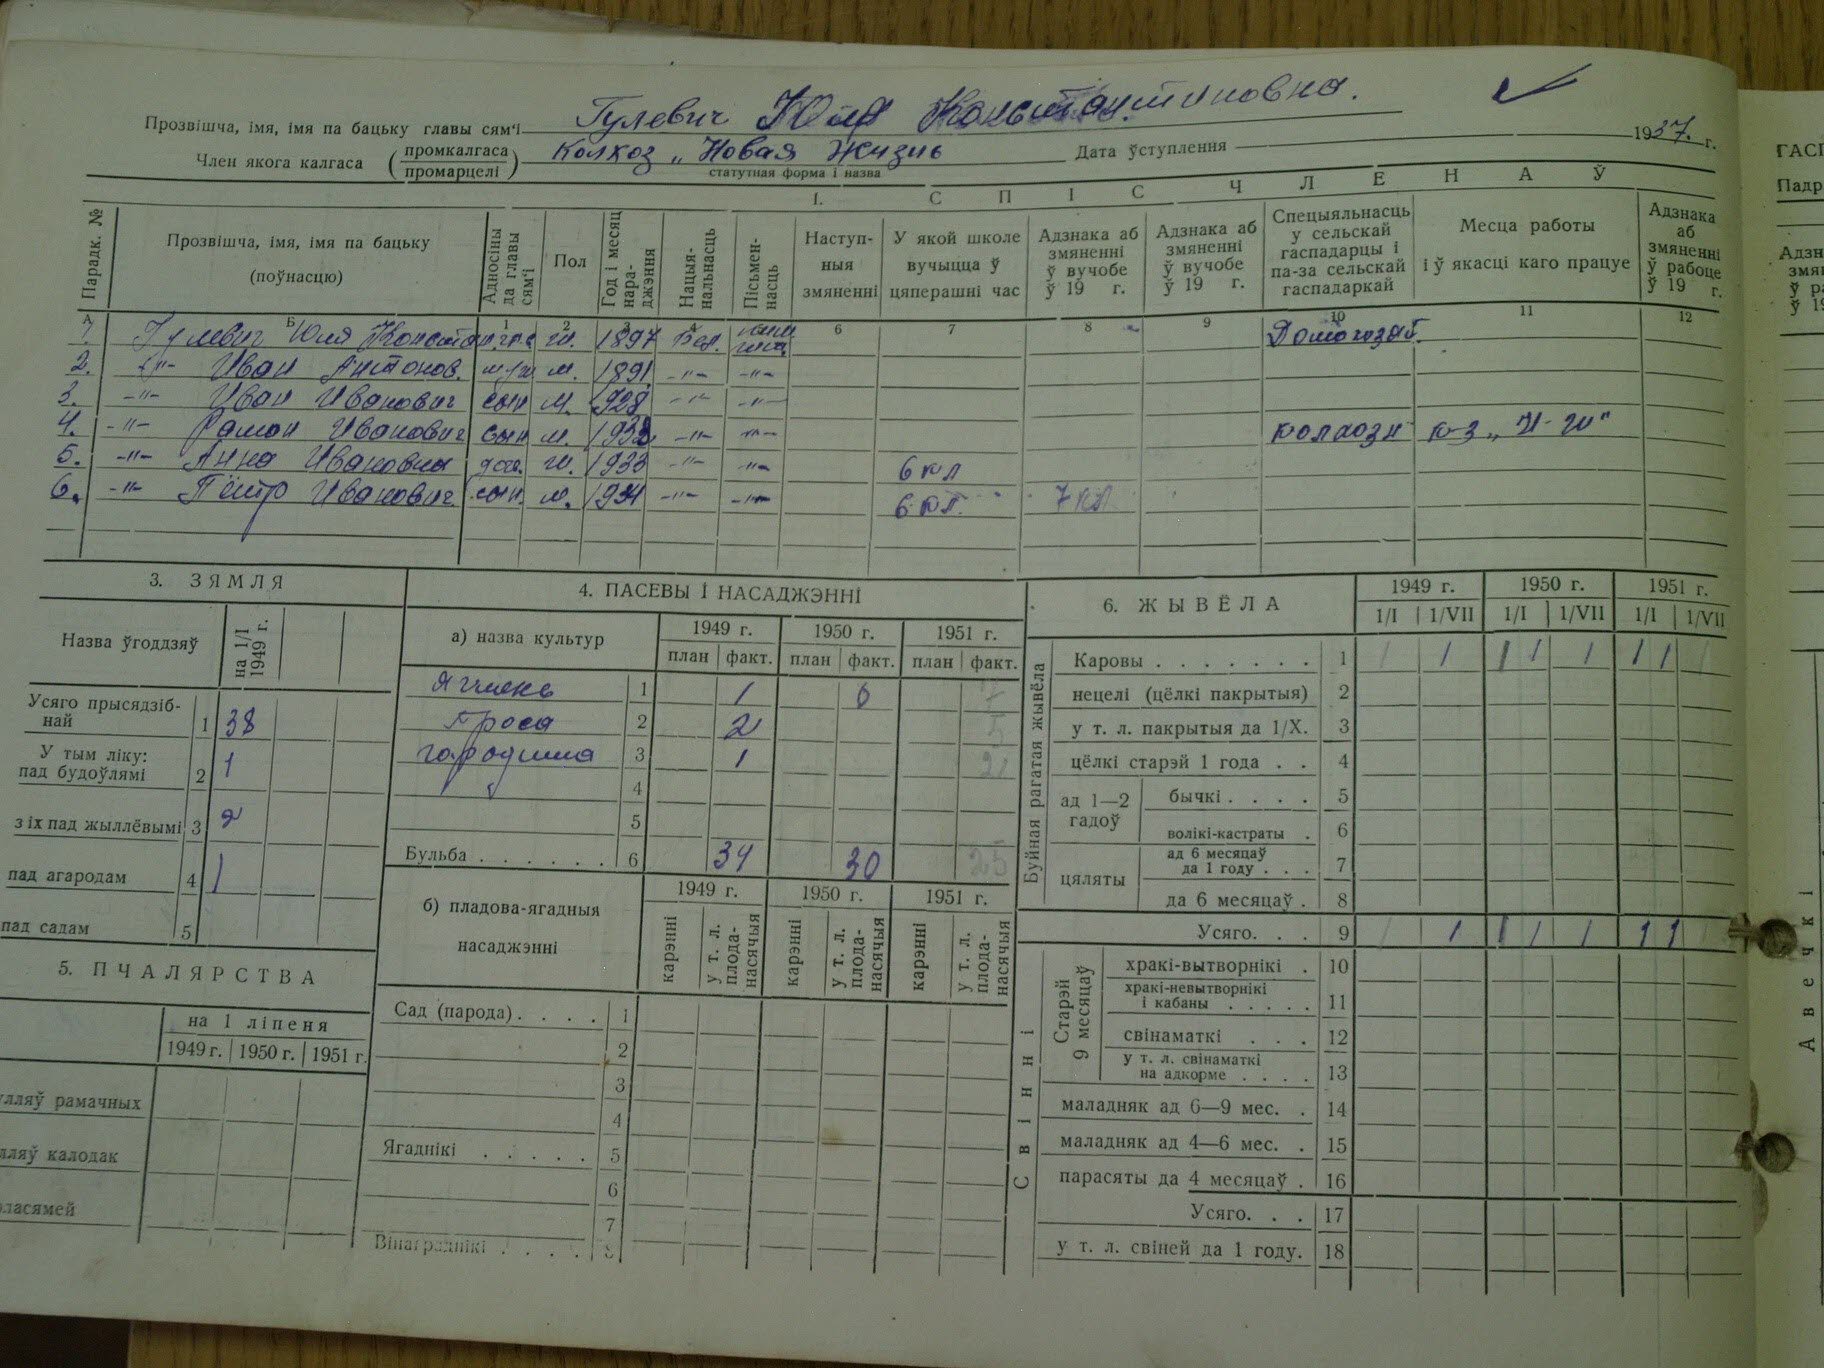 Прозвішча, імя, імя па бацьку главы сям'і Гулевич Юля Константиновна.
Член якога калгаса (промкалгаса промарцелі) Колхоз „Новая Жизнь Дата ўступлення 1937. г.
статутная форма і назва
I. СПІС ЧЛЕНАЎ
Парадк. № | Прозвішча, імя, імя па бацьку (поўнасцю) | Адносіны да главы сям'і | Пол | Год і месяц нараджэння | Нацыянальнасць | Пісьменнасць | Наступныя змяненні | У якой школе вучыцца ў цяперашні час | Адзнака аб змяненні ў вучобе ў 19 г. | Адзнака аб змяненні ў вучобе ў 19 г. | Спецыяльнасць у сельскай гаспадарцы і па-за сельскай гаспадаркай | Месца работы і ў якасці каго працуе | Адзнака аб змяненні ў рабоце ў 19 г.
А Б 1 2 3 4 5 6 7 8 9 10 11 12
1. Гулевич Юля Констан ж. 1897 Бел.
2. -"- Иван Антонов. муж м. 1891 -"- -"-
3. -"- Иван Иванович сын м. 1928 -"- -"-
4. -"- Рамон Иванович сын м. -"- -"- колхозн к-з „Н-Ж"
5. -"- Анна Ивановна доч. ж. 1933 -"- -"- 6 кл
6. -"- Пётр Иванович. сын м. -"- -"- 6 кл. 7 кл
3. ЗЯМЛЯ
Назва ўгоддзяў | на 1/I 1949 г.
Усяго прысядзібнай 1 38
У тым ліку: пад будоўлямі 2 1
з іх пад жыллёвымі 3 2
пад агародам 4 1
пад садам 5
5. ПЧАЛЯРСТВА
на 1 ліпеня
1949 г. 1950 г. 1951 г.
рамачных
калодак
4. ПАСЕВЫ І НАСАДЖЭННІ
а) назва культур | 1949 г. | 1950 г. | 1951 г.
план факт. план факт. план факт.
ячмень 1 1 6
Проса 2 2 5
гародніна 3 1 21
4
5
Бульба . . . . . . 6 34 30 25
б) пладова-ягадныя насаджэнні | 1949 г. | 1950 г. | 1951 г.
карэнні | у т. л. плоданасячыя | карэнні | у т. л. плоданасячыя | карэнні | у т. л. плоданасячыя
Сад (парода) . . . . 1
2
3
4
Ягаднікі . . . . . 5
6
7
Вінаграднікі . . . . 8
6. ЖЫВЁЛА | 1949 г. | 1950 г. | 1951 г.
1/I 1/VII 1/I 1/VII 1/I 1/VII
Буйная рагатая жывёла
Каровы . . . . . . . 1 1 1 1 1 1 1 1 1
нецелі (цёлкі пакрытыя) 2
у т. л. пакрытыя да 1/X. 3
цёлкі старэй 1 года . . 4
ад 1—2 гадоў бычкі . . . . 5
волікі-кастраты . 6
цяляты ад 6 месяцаў да 1 году . . . 7
да 6 месяцаў . 8
Усяго. . . 9 1 1 1 1 1 1 1
Свінні
Старэй 9 месяцаў
хракі-вытворнікі . 10
хракі-невытворнікі і кабаны . . . . . 11
свінаматкі . . . 12
у т. л. свінаматкі на адкорме . . . . 13
маладняк ад 6—9 мес. . 14
маладняк ад 4—6 мес. . 15
парасяты да 4 месяцаў . 16
Усяго. . . 17
у т. л. свіней да 1 году. 18
Авечкі